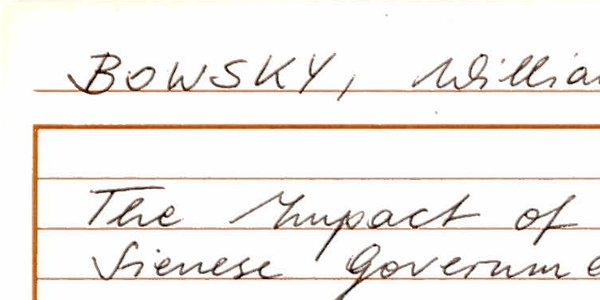 BOWSKY, Willia
The Impact of
Sienese Governme